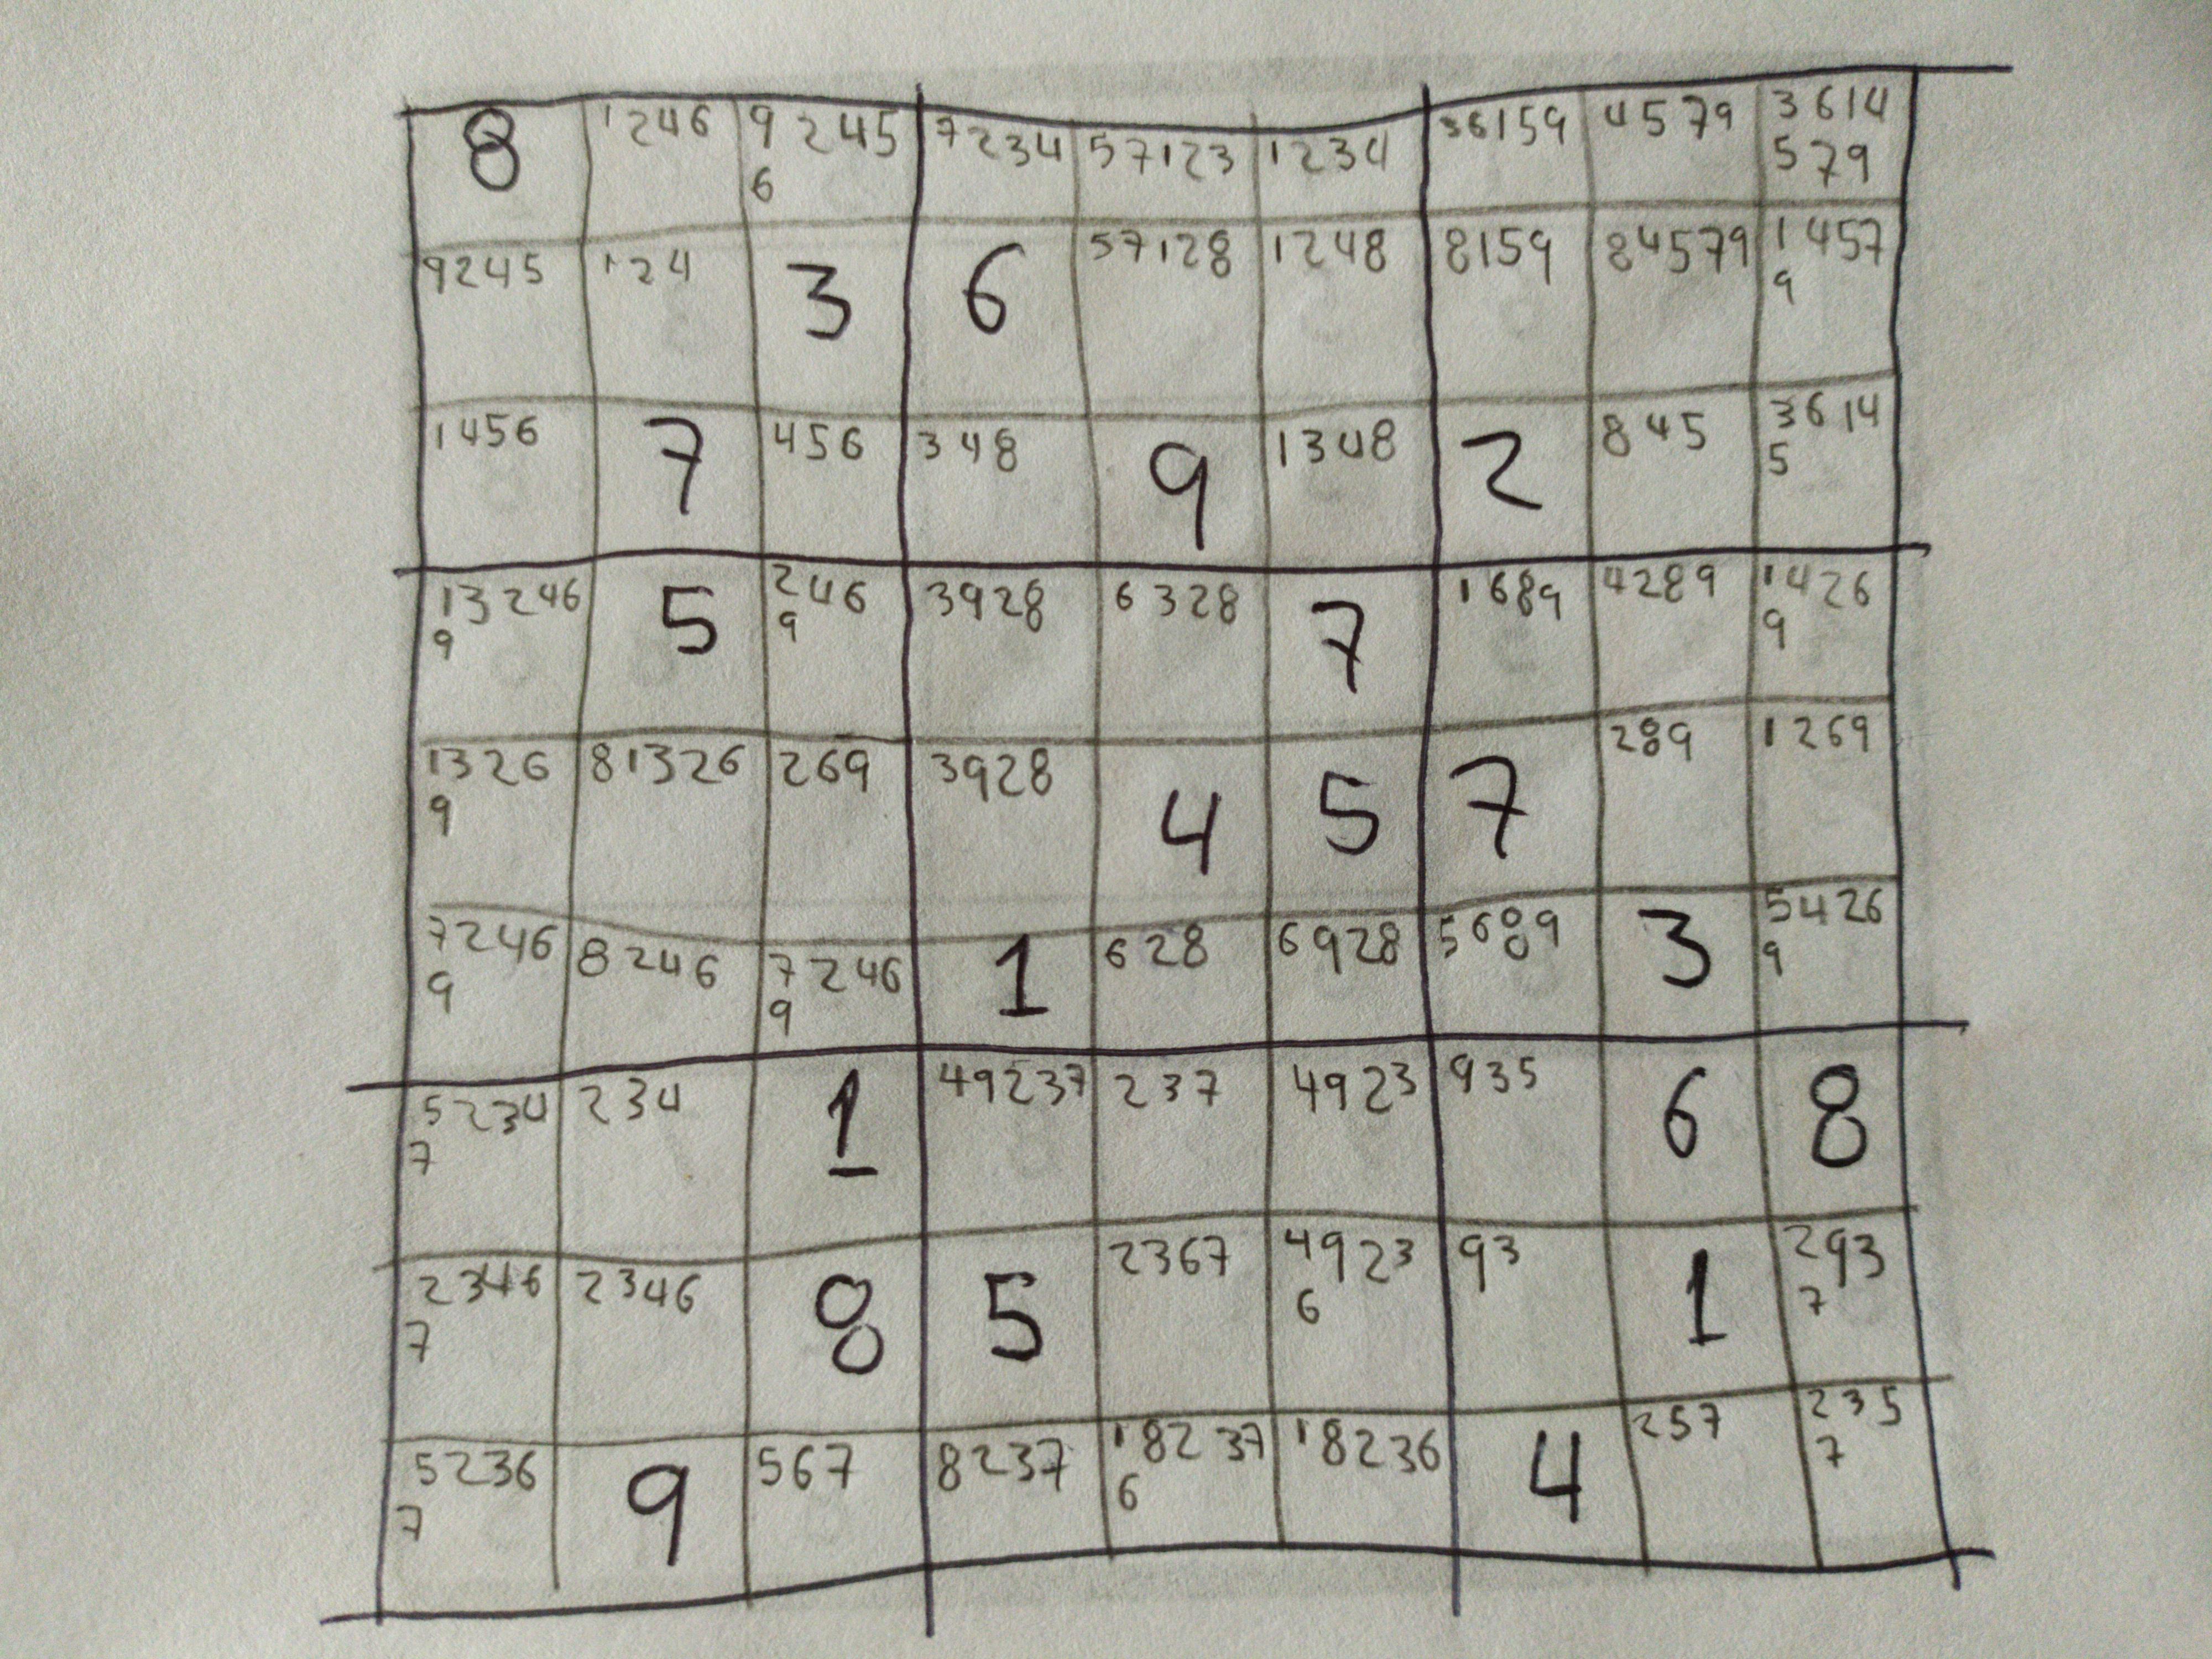 8 1246 9245 7234 57123 1234 36159 4579 3614
6 579
9245 124 3 6 57128 1248 8159 84579 1457
9
1456 7 456 348 9 1348 2 845 3614
5
13246 5 246 3928 6328 7 1689 4289 1426
9 9 9
1326 81326 269 3928 4 5 7 289 1269
9
7246 8246 7246 1 628 6928 5689 3 5426
9 9 9
5234 234 1 49237 237 4923 935 6 8
7
2346 2346 8 5 2367 4923 93 1 293
7 6 7
5236 9 567 8237 18237 18236 4 257 235
7 6 7